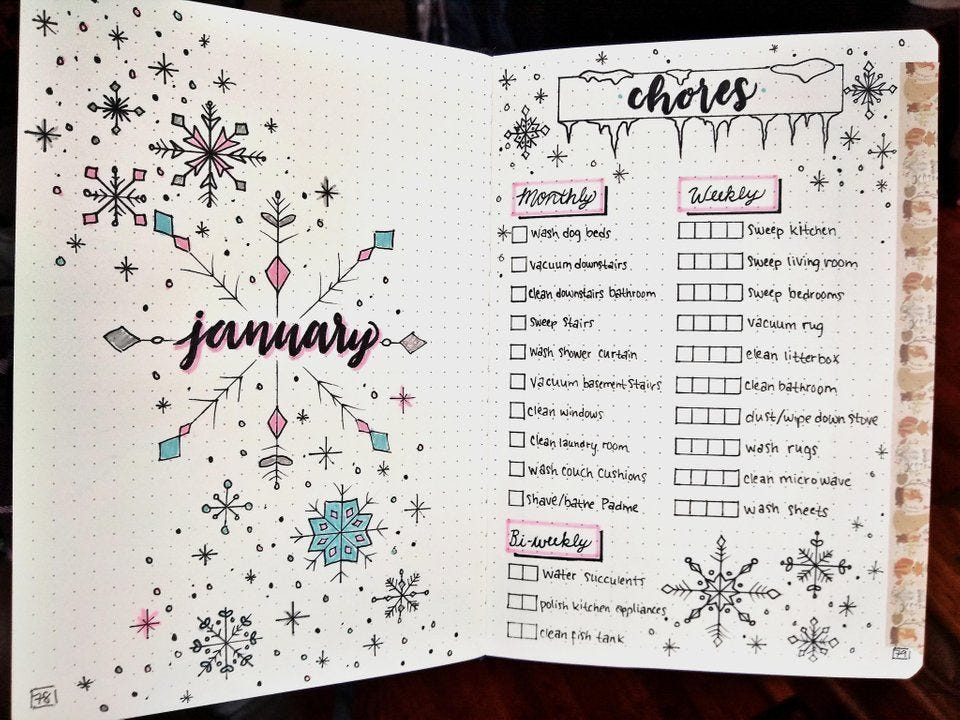 january
78
chores
Monthly
wash dog beds
vacuum downstairs
clean downstairs bathroom
Sweep Stairs
wash shower curtain
vacuum basement Stairs
clean windows
clean laundry room
wash couch cushions
Shave/bathe Padme
Bi-weekly
water succulents
polish kitchen appliances
clean fish tank
Weekly
Sweep kitchen
Sweep living room
Sweep bedrooms
vacuum rug
clean litterbox
clean bathroom
dust/wipe down stove
wash rugs
clean microwave
wash sheets
79